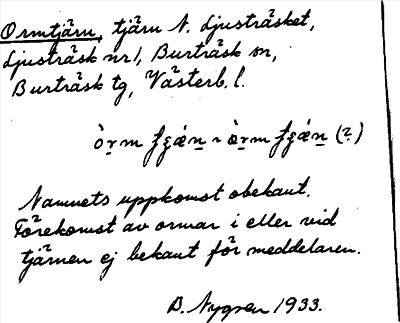 Ormtjärn, tjärn N. Ljusträsket,
Ljusträsk nr 1, Burträsk sn,
Burträsk tg, Västerb. l.
Namnets uppkomst obekant.
Förekomst av ormar i eller vid
tjärnen ej bekant för meddelaren.
B. Nygren 1933.